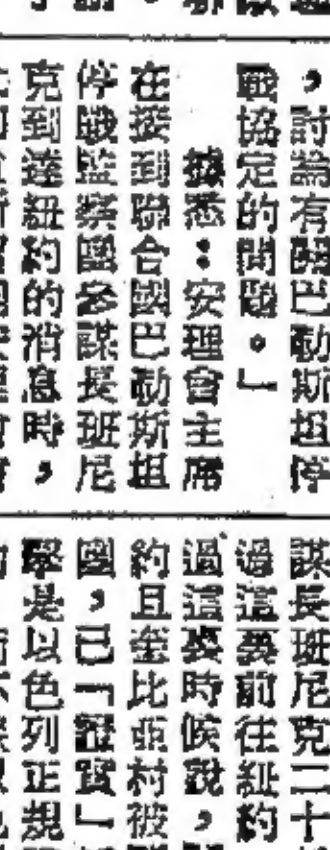 ，討論有關巴勒斯坦停
戰協定的問題。」
據悉：安理會主席
在接到聯合國巴勒斯坦
停戰監察團參謀長班尼
克到達紐約的消息時，
謀長班尼克二十
過這裏前往紐約
過這裏時候說，
約且奎比亞村被
團，已「證實」
擊是以色列正規